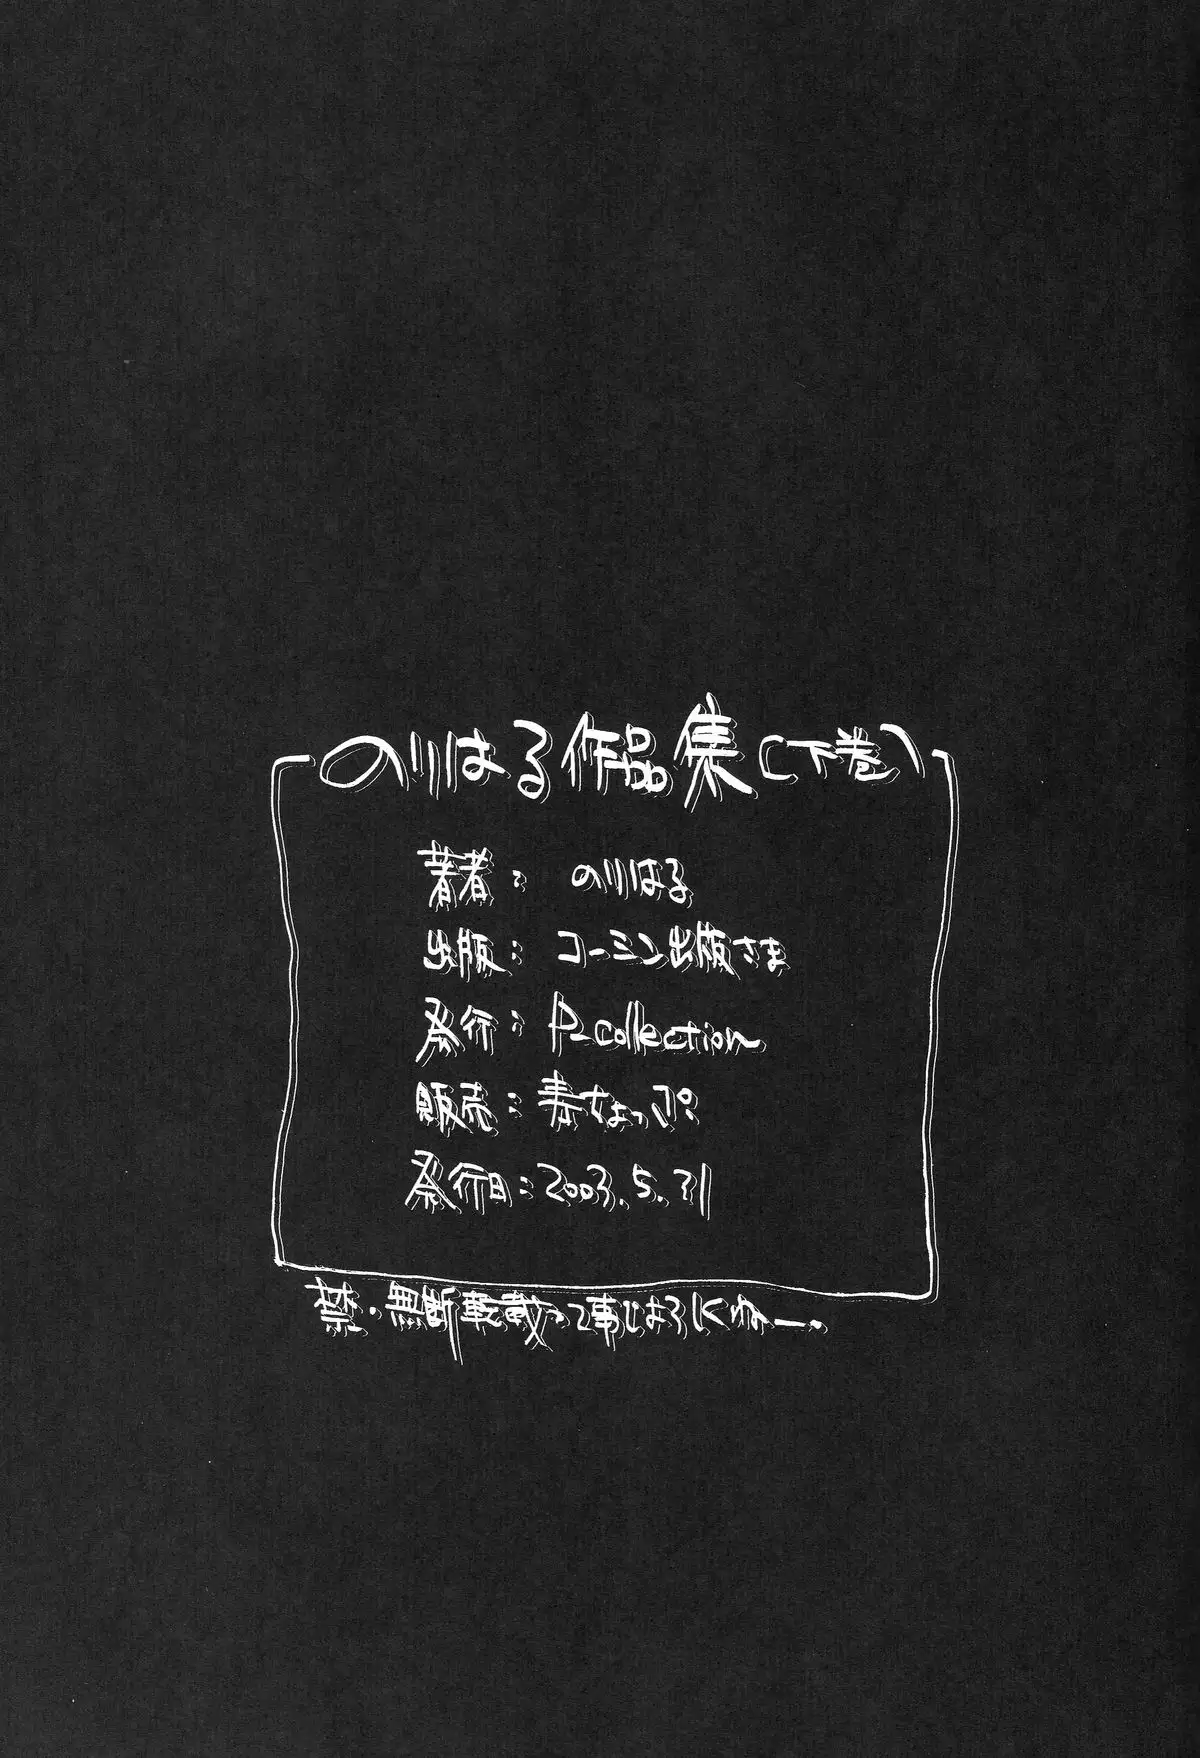 のりはる作品集(下巻)
著者: のりはる
出版: コーミン出版さま
発行: P-collection
販売: 青ちょっぷ
発行日: 2003.5.31
禁・無断転載って事じゃろKねー.